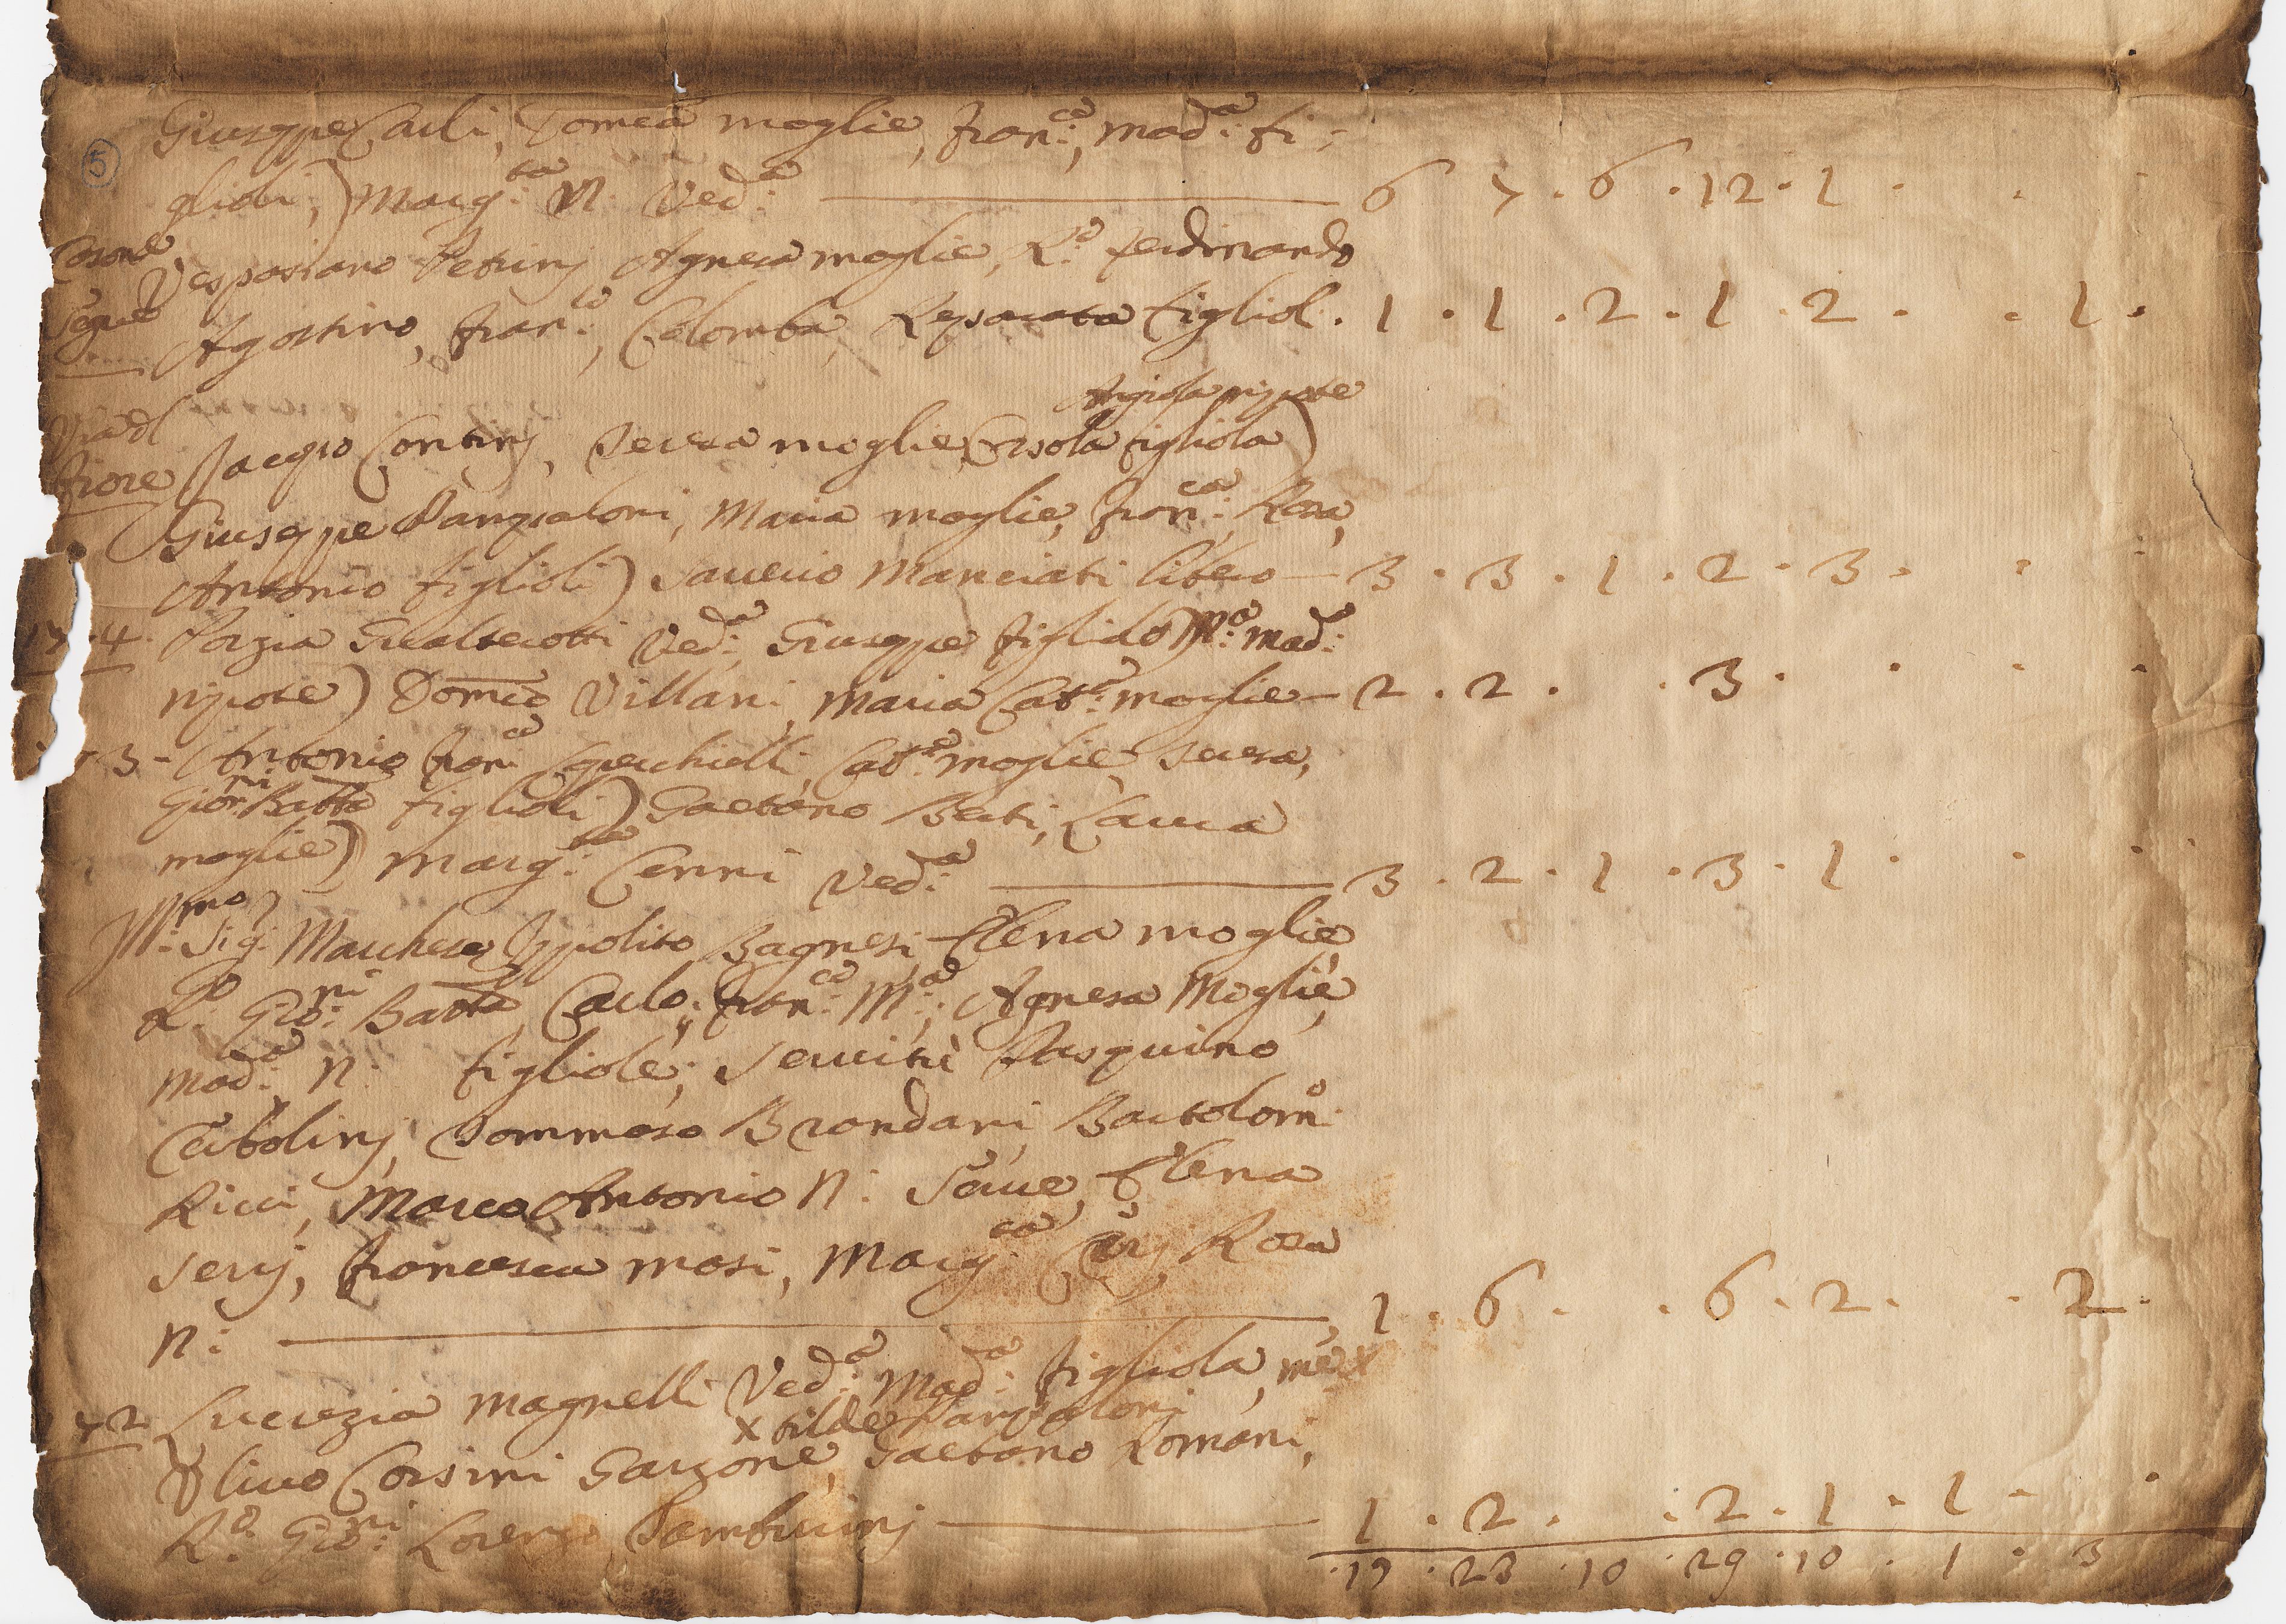 Giuseppe Carli, Domca moglie, Fran:co, Mad:a fi:
5
glioli;) Marg:ta N: Ved:a — 6 7 . 6 . 12 . 1 .
Vespasiano Petrinj Agnesa moglie, R:o Ferdinando
Segue Agostino, Fran:co, Colomba, Reparata figliol: . 1 . 1 . 2 . 1 . 2 . . 1 .
Angiola nipote
Via del
Fiore Jacopo Contini, Teresa moglie (Orsola figliola)
Giuseppe Pampaloni, Maria moglie, Fran:ca Rosa,
Antonio figlioli) Saverio Manciati libero — 3 . 3 . 1 . 2 . 3 .
4 . Porzia Gualterotti Ved:a, Giuseppe figliolo M:a Mad:a
nipote) Domco Villani, Maria Cat:a moglie — 2 . 2 . . 3 .
3 - Antonio Fran:co Specchielli, Cat:a moglie Teresa,
Gio:ni Batta figlioli) Gaetano Berti, Laura
moglie) Marg:ta Cenni Ved:a — 3 . 2 . 1 . 3 . 1 .
Ill:mo Sig: Marchese Ippolito Bagnesi Elena moglie
R:o Gio:ni Batta, Carlo; Fran:co M:a; Agnesa Moglie,
Mad:a N: figliole; Servitù Pasquino
Certolinj, Tommaso Brandani Bartolom:o
Ricci, Marco Antonio N: Serve, Elena
Serij, Francesca Masi, Marg:ta Rosa
N: — 1 . 6 . . 6 . 2 . . 2 .
2 Lucrezia Magnelli Ved:a Mad:a figliola, me x
x tilde Pampaloni
Olivo Corsini Garzone, Gaetano Romani,
R:o Gio:ni Lorenzo Tamburinj — 1 . 2 . . 2 . 1 . 1 .
. 17 . 23 . 10 . 29 . 10 . 1 . 3